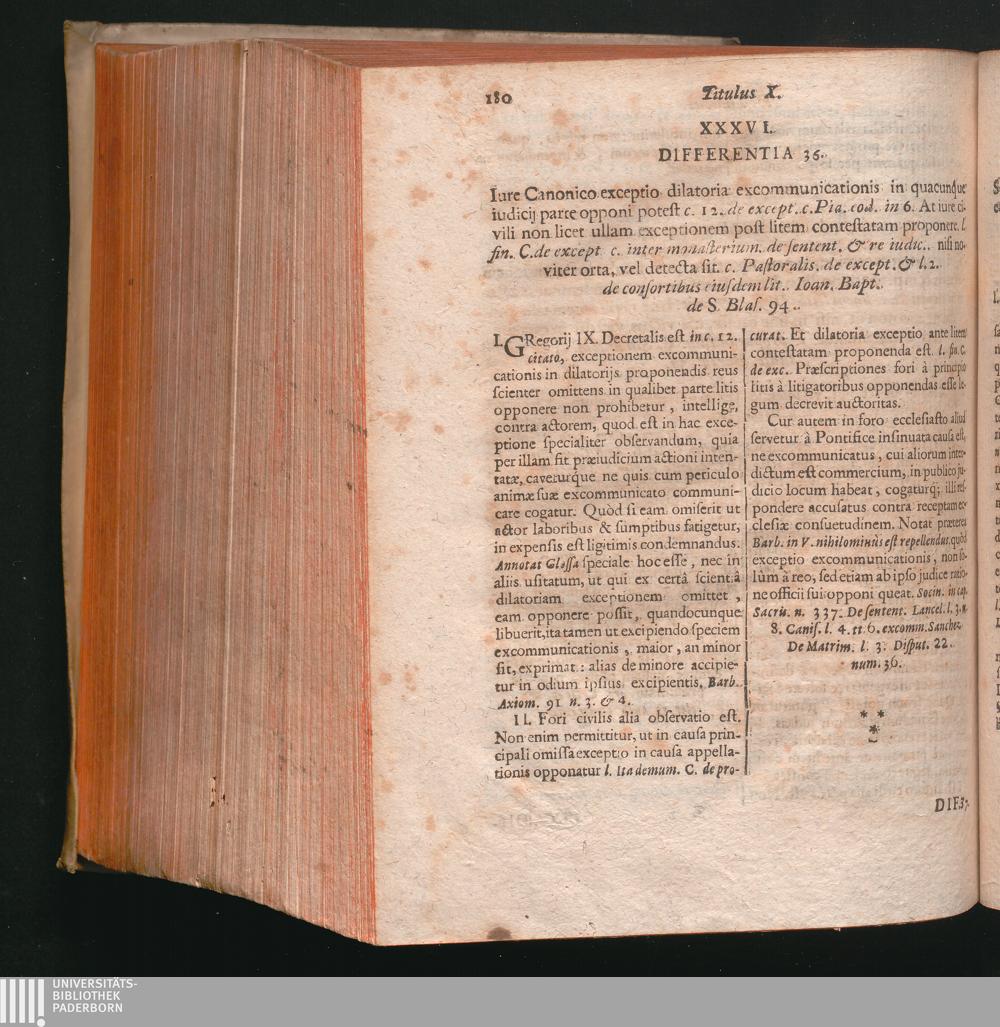 180
Titulus X.
XXXVI.
DIFFERENTIA 36.
Iure Canonico exceptio dilatoria excommunicationis in quacunque
iudicij parte opponi potest c. 12. de except. c. Pia. eod. in 6. At iure ci-
vili non licet ullam exceptionem post litem contestatam proponere. l.
fin. C. de except c. inter monasterium. de sentent. & re iudic. nisi no-
viter orta, vel detecta sit. c. Pastoralis. de except. & l. 2.
de consortibus eiusdem lit. Ioan. Bapt.
de S. Blas. 94.
I. GRegorij IX. Decretalis est in c. 12.
citato, exceptionem excommuni-
cationis in dilatorijs proponendis reus
scienter omittens in qualibet parte litis
opponere non prohibetur, intellige,
contra actorem, quod est in hac exce-
ptione specialiter observandum, quia
per illam fit præiudicium actioni inten-
tatæ, caveturque ne quis cum periculo
animæ suæ excommunicato communi-
care cogatur. Quòd si eam omiserit ut
actor laboribus & sumptibus fatigetur,
in expensis est ligitimis condemnandus.
Annotat Glossa speciale hoc esse, nec in
aliis usitatum, ut qui ex certâ scientiâ
dilatoriam exceptionem omittet,
eam opponere possit, quandocunque
libuerit, ita tamen ut excipiendo speciem
excommunicationis, maior, an minor
sit, exprimat: alias de minore accipie-
tur in odium ipsius excipientis, Barb.
Axiom. 91 n. 3. & 4.
II. Fori civilis alia observatio est.
Non enim permittitur, ut in causa prin-
cipali omissa exceptio in causa appella-
tionis opponatur l. Ita demum. C. de pro-
curat. Et dilatoria exceptio ante litem
contestatam proponenda est. l. fin. C.
de exc. Præscriptiones fori à principio
litis à litigatoribus opponendas esse le-
gum decrevit auctoritas.
Cur autem in foro ecclesiasto aliud
servetur à Pontifice insinuata causa est,
ne excommunicatus, cui aliorum inter-
dictum est commercium, in publico ju-
dicio locum habeat, cogaturq; illi res-
pondere accusatus contra receptam ec-
clesiæ consuetudinem. Notat præterea
Barb. in V. nihilominùs est repellendus. quòd
exceptio excommunicationis, non so-
lùm à reo, sed etiam ab ipso judice ratio-
ne officii sui opponi queat. Socin. in cap.
Sacris. n. 337. De sentent. Lancel. l. 3. n.
8. Canis. l. 4. tt. 6. excomm. Sanchez
De Matrim. l. 3. Disput. 22.
num. 36.
* *
*
DIF. 37.
UNIVERSITÄTS-
BIBLIOTHEK
PADERBORN